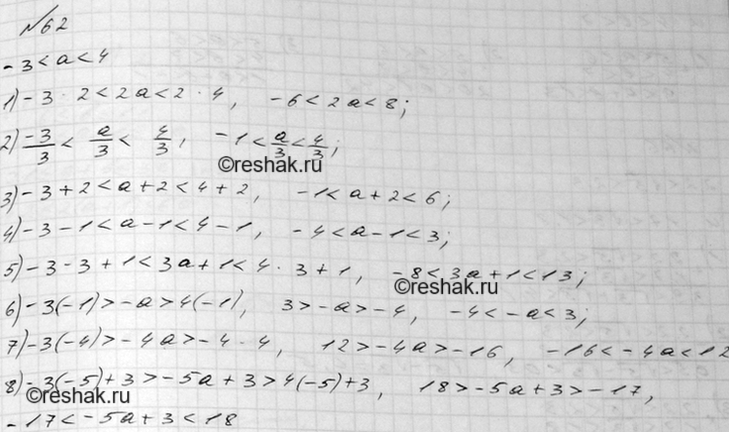 №62
-3<a<4
1) -3 · 2<2a<2 · 4, -6<2a<8;
2) -3/3 < a/3 < 4/3, -1<a/3<4/3;
©reshak.ru
3) -3+2<a+2<4+2, -1<a+2<6;
4) -3-1<a-1<4-1, -4<a-1<3;
5) -3·3+1<3a+1<4·3+1, -8<3a+1<13;
©reshak.ru
6) -3(-1)>-a>4(-1), 3>-a>-4, -4<-a<3;
7) -3(-4)>-4a>-4·4, 12>-4a>-16, -16<-4a<12
8) -3(-5)+3>-5a+3>4(-5)+3, 18>-5a+3>-17,
©reshak.ru
-17<-5a+3<18